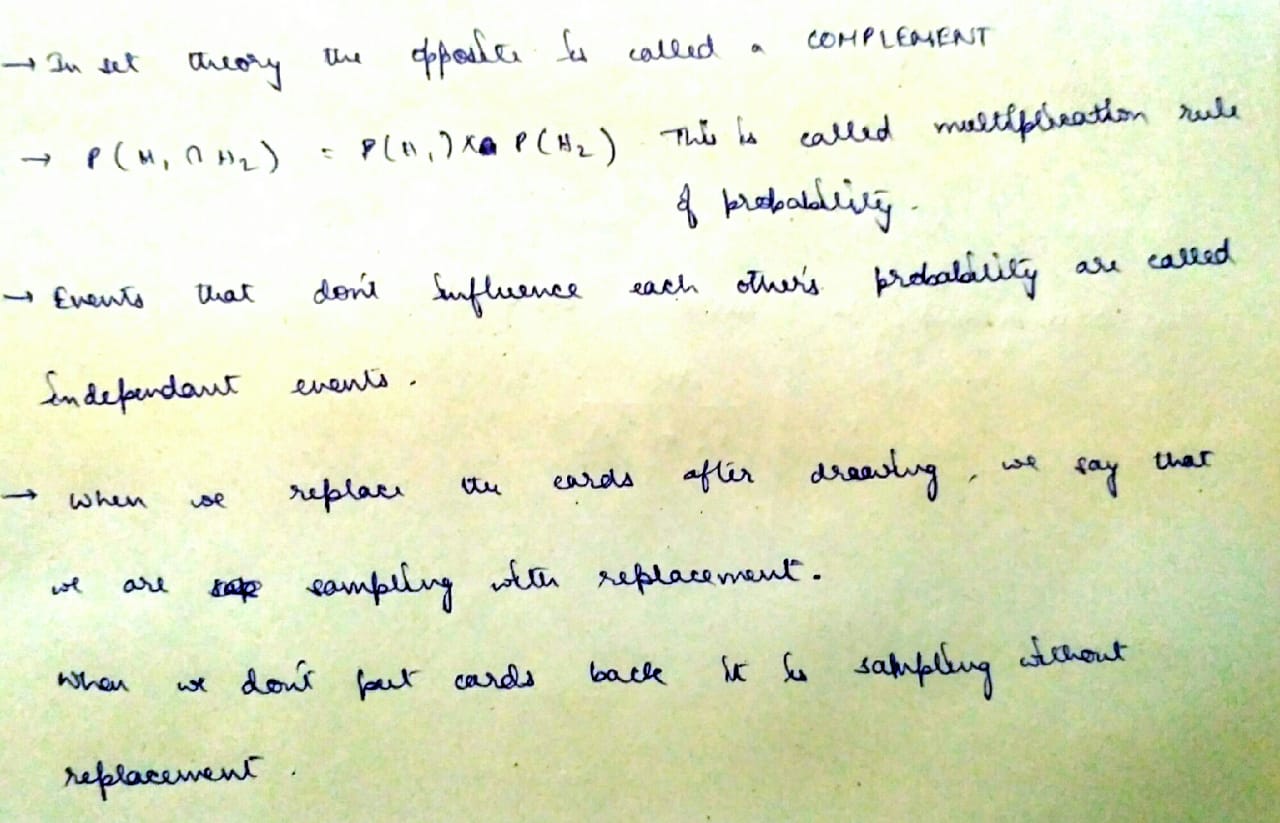 → In set theory the opposite is called a COMPLEMENT
→ P(H₁ ∩ H₂) = P(H₁) x P(H₂) This is called multiplication rule
of probability.
→ Events that don't influence each other's probability are called
independant events.
→ When we replace the cards after drawing, we say that
we are sampling with replacement.
When we don't put cards back it is sampling without
replacement.